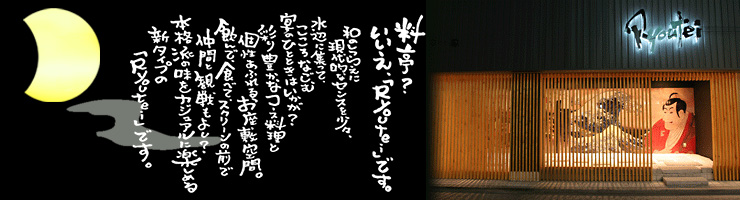 料亭?
いいえ、「Ryoutei」です。
現代的なセンスを少々、
水辺に集って、
こころなごむ
宴のひとときはいかが?
彩り豊かなコース料理と
個性あふれるお座敷空間。
飲んで、食べて、スクリーンの前で
仲間と観戦もよし?
本格派の味をカジュアルに楽しめる
新タイプの
「Ryoutei」です。
Ryoutei